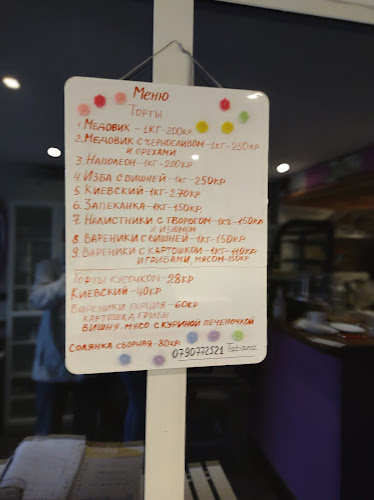 Меню
Торты
1. Медовик - 1кг - 200кр.
2. Медовик с черносливом - 1кг - 250кр
и орехами
3. Наполеон - 1кг - 200кр.
4. Изба с вишней - 1кг - 250кр
5. Киевский - 1кг. 270кр.
6. Запеканка - 1кг - 150кр.
7. Налистники с творогом - 1кг - 150кр
и изюмом
8 Вареники с вишней - 1кг - 150кр.
9. Вареники с картошкой - 1кг - 140кр
и грибами, мясом - 150кр.
Торты кусочком - 28кр
Киевский - 40кр
Вареники порция - 60кр
картошка грибы
вишня. мясо с куриной печеночкой
Солянка сборная - 80кр.
0790772521 Tatiana